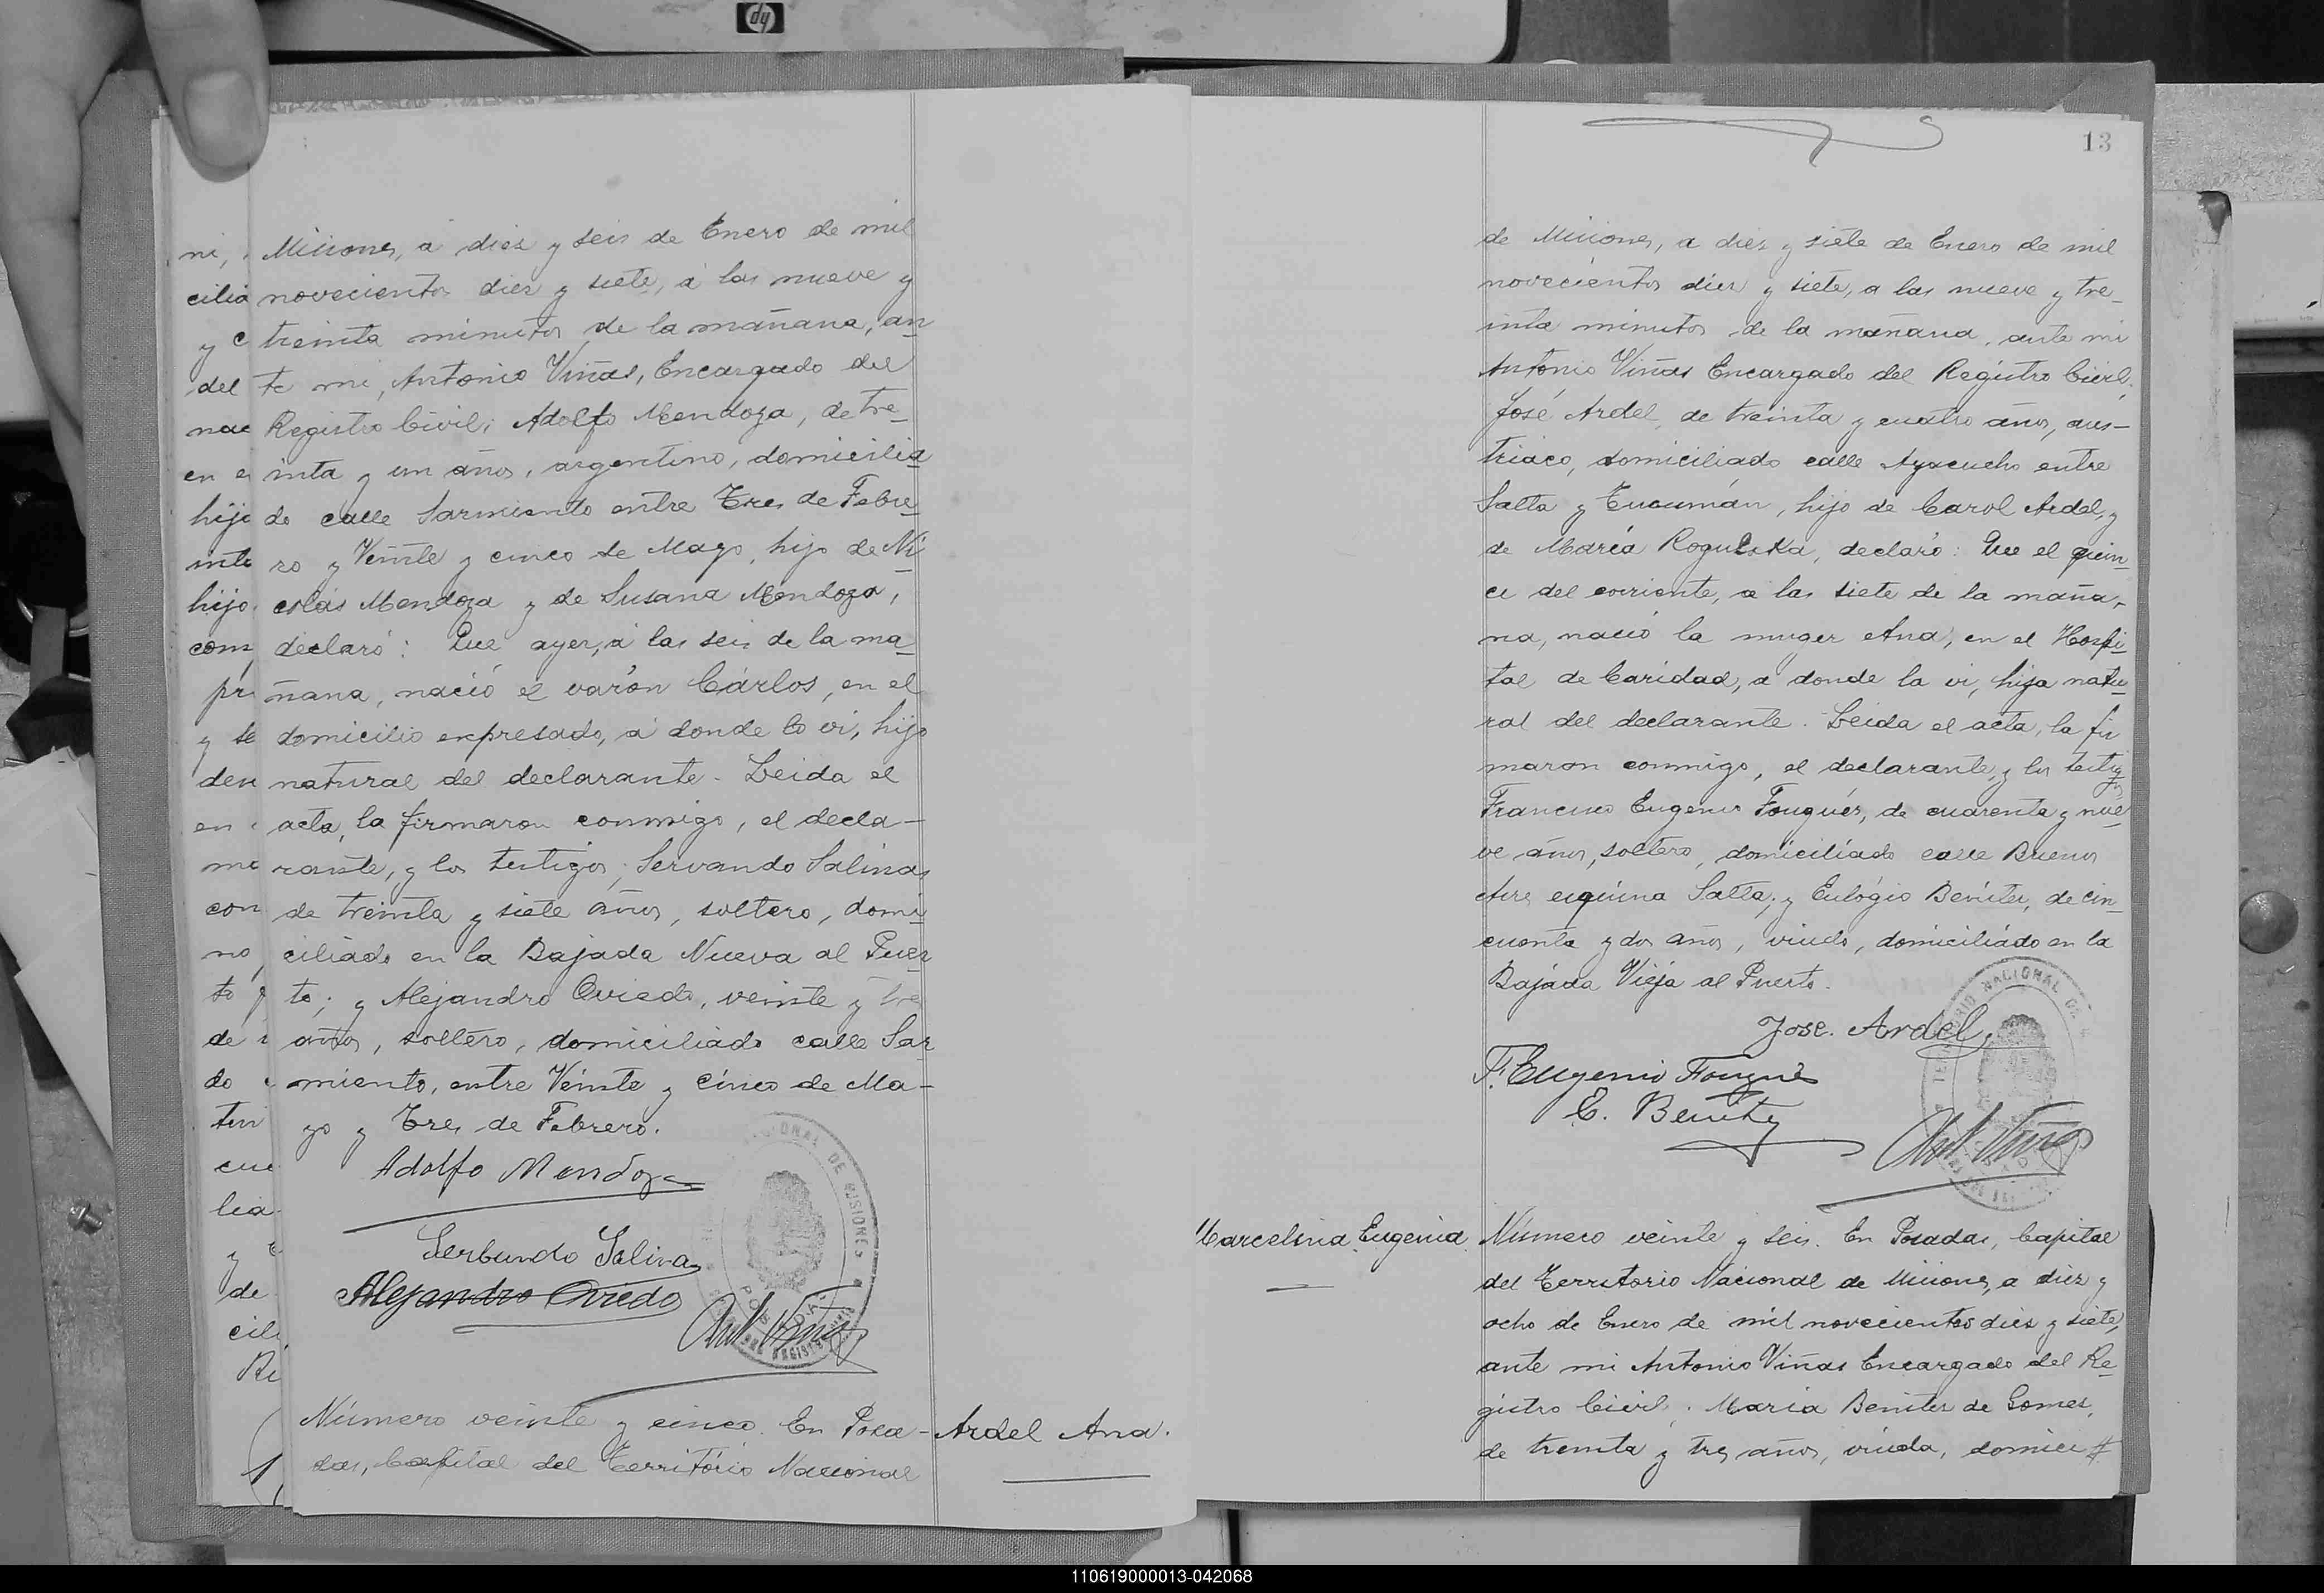 hp
ni,
cilia
y c
del
nac
en e
hijo
inte
hijo
com
pr
y se
den
en
me
con
no,
to y
de
do
tin
cue
lia
y
de
cili
Ri
Misiones, a diez y seis de Enero de mil
novecientos diez y siete, á las nueve y
treinta minutos de la mañana, an
te mi, Antonio Viñas, Encargado del
Registro Civil; Adolfo Mendoza, de tre
inta y un años, argentino, domicilia
do calle Sarmiento entre Tres de Febre
ro y Veinte y cinco de Mayo, hijo de Ni
colás Mendoza y de Susana Mendoza,
declaró: Que ayer, á las seis de la ma
ñana, nació el varón Cárlos, en el
domicilio expresado, á donde lo vi, hijo
natural del declarante. Leida el
acta, la firmaron conmigo, el decla-
rante, y los testigos, Servando Salinas
de treinta y siete años, soltero, domi
ciliado en la Bajada Nueva al Puer
to; y Alejandro Oviedo, veinte y tres
años, soltero, domiciliado calle Sar
miento, entre Veinte y cinco de Ma-
yo y Tres de Febrero.
Adolfo Mendoza
Serbundo Salinas
Alejandro Oviedo
Ant Viñas
Número veinte y cinco. En Posa-
das, Capital del Território Nacional
Ardel Ana.
13
de Misiones, a diez y siete de Enero de mil
novecientos diez y siete, a las nueve y tre-
inta minutos de la mañana, ante mi
Antonio Viñas Encargado del Registro Civil,
José Ardel, de treinta y cuatro años, aus-
triaco, domiciliado calle Ayacucho entre
Salta y Tucumán, hijo de Carol Ardel, y
de María Rogulska, declaró: Que el quin
ce del corriente, a las siete de la maña-
na, nació la muger Ana, en el Hospi
tal de Caridad, a donde la vi, hija natu
ral del declarante. Leida el acta, la fir
maron conmigo, el declarante, y los testigos
Francisco Eugenio Fouqués, de cuarenta y nue
ve años, soltero, domiciliado calle Buenos
Aires esquina Salta; y Eulógio Benitez, de cin
cuenta y dos años, viudo, domiciliado en la
Bajada Vieja al Puerto.
José. Ardel
F. Eugenio Fouqués
E. Benitez
Ant Viñas
Marcelina Eugenia
Número veinte y seis. En Posadas, Capital
del Territorio Nacional de Misiones, a diez y
ocho de Enero de mil novecientos diez y siete,
ante mi Antonio Viñas Encargado del Re
gistro Civil; Maria Benitez de Gomes,
de treinta y tres años, viuda, domici #
110619000013-042068